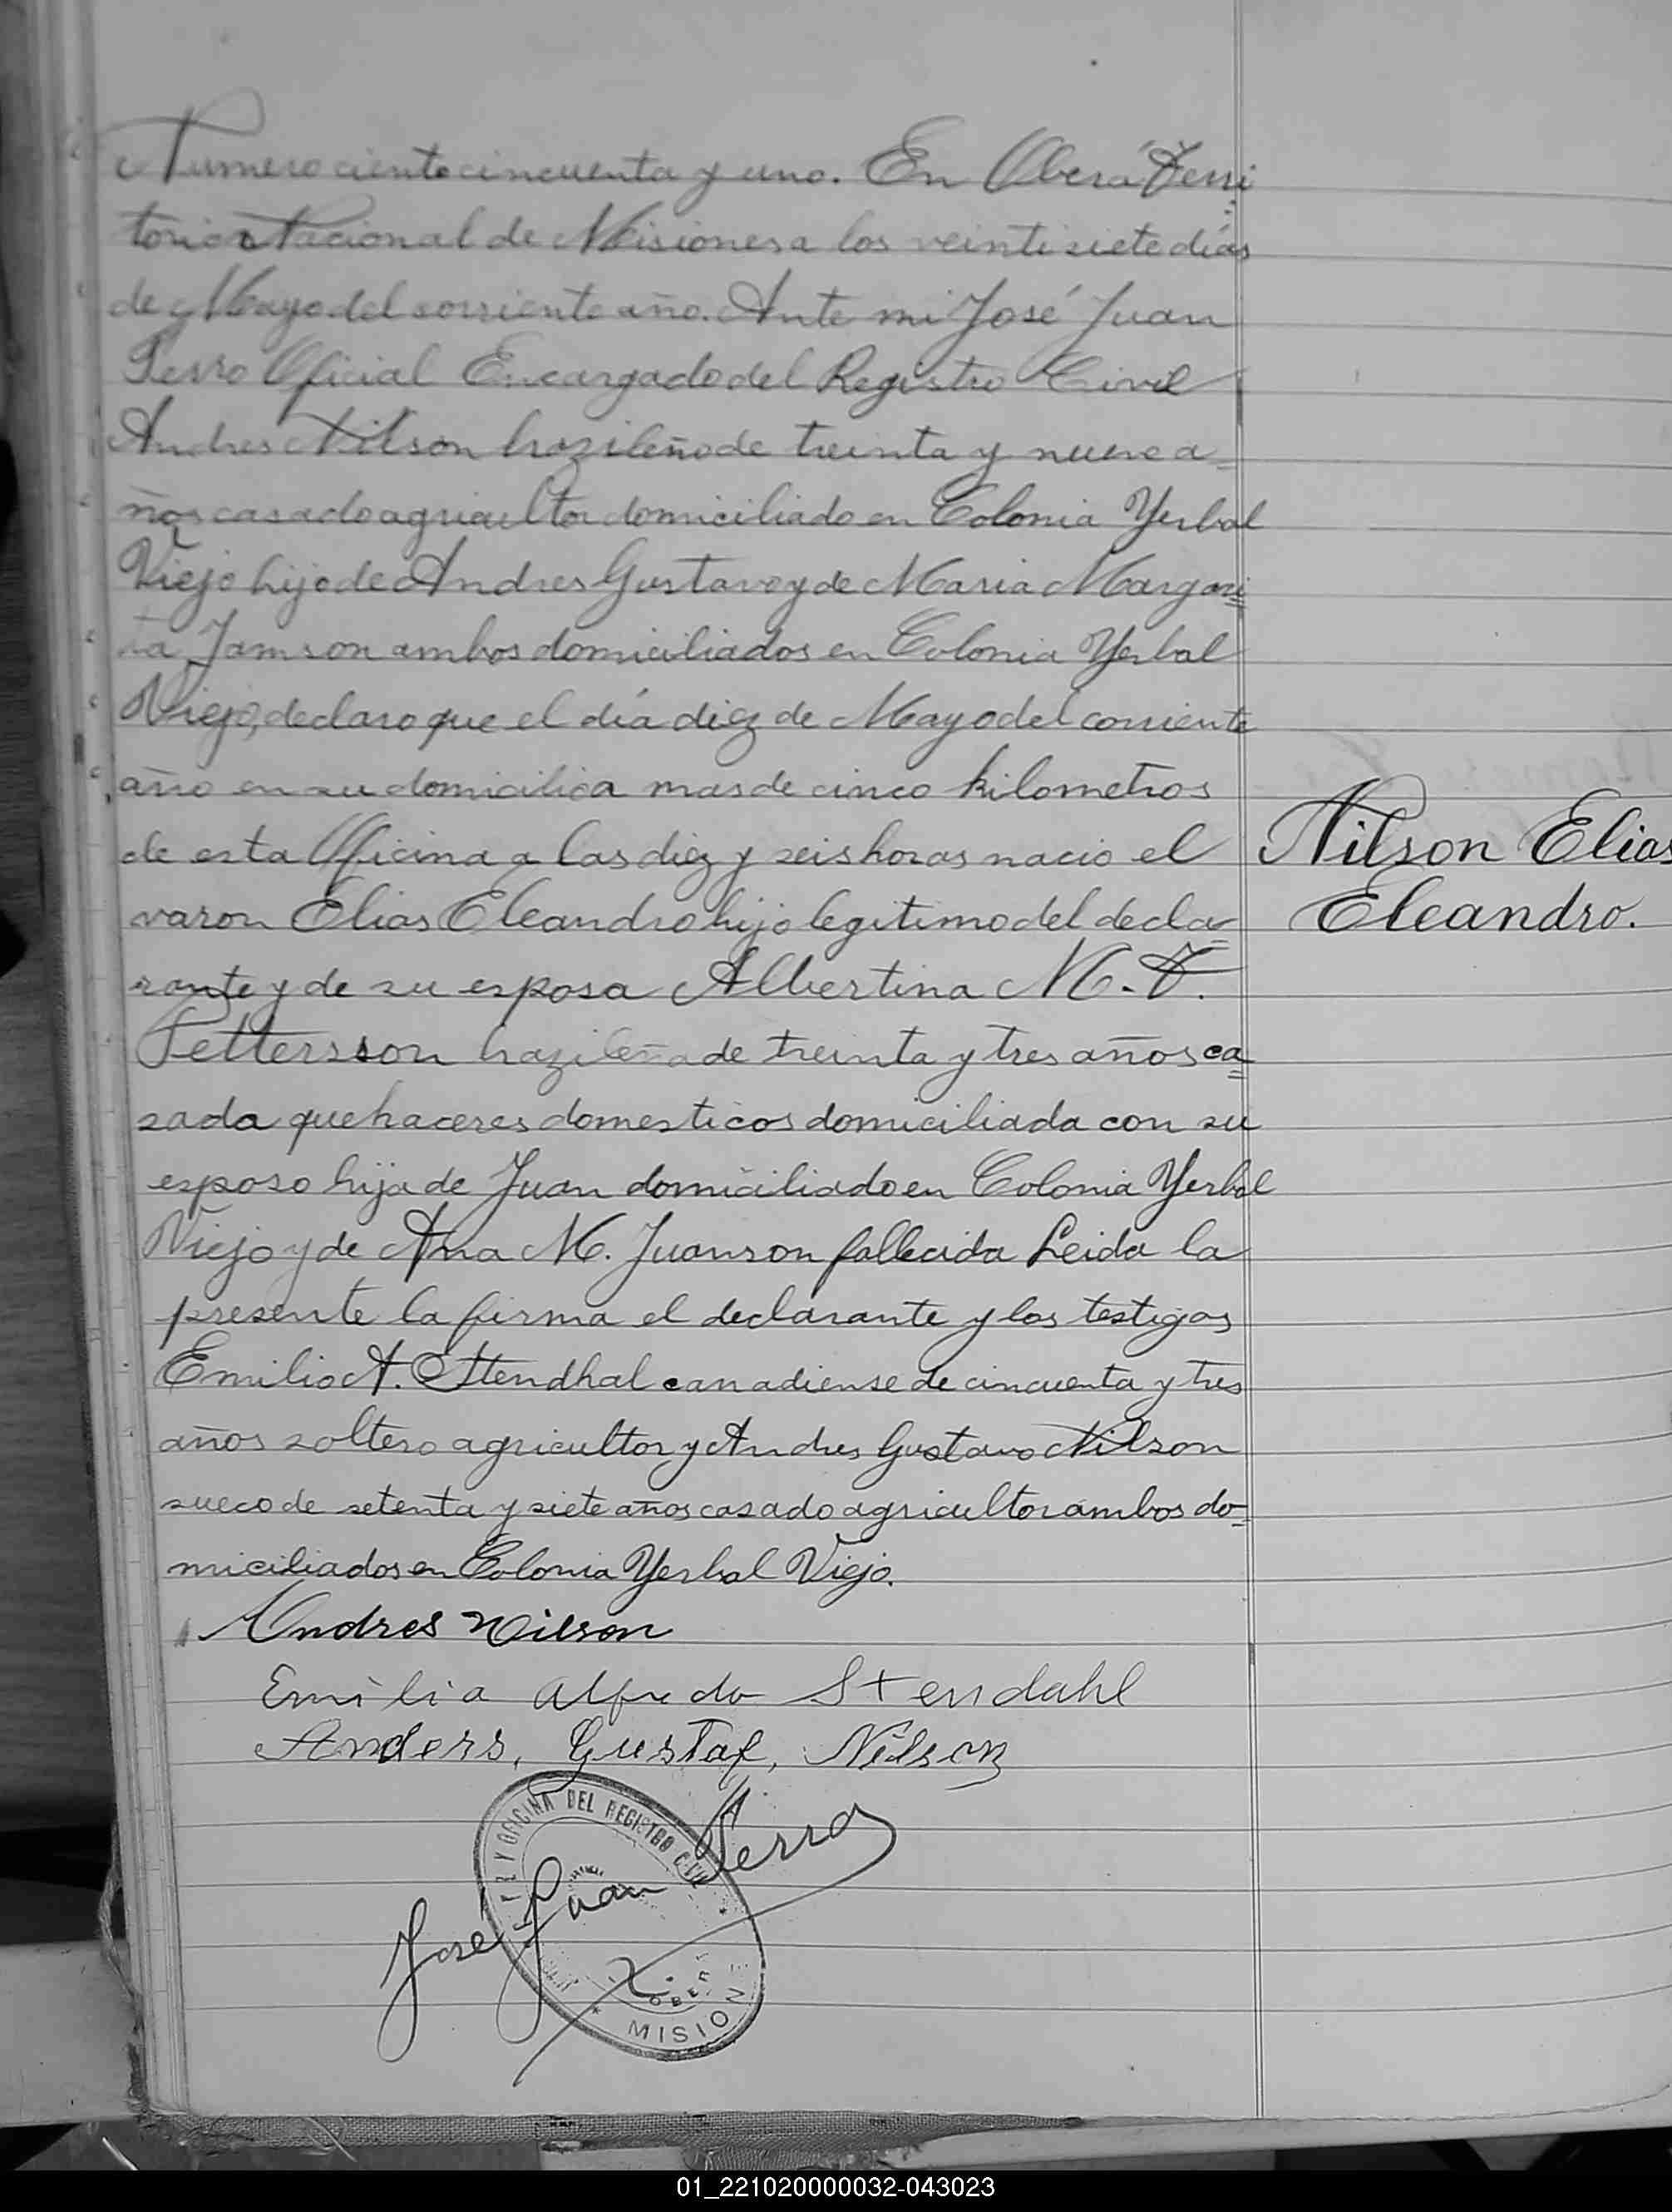 Numero ciento cincuenta y uno. En Oberá Terri
torio Nacional de Misiones a los veintisiete días
de Mayo del corriente año. Ante mi José Juan
Perro Oficial Encargado del Registro Civil
Andres Nilson brazileño de treinta y nueve a
ños casado agricultor domiciliado en Colonia Yerbal
Viejo hijo de Andres Gustavo y de Maria Margari=
ta Jamson ambos domiciliados en Colonia Yerbal
Viejo, declaro que el día diez de Mayo del corriente
año en su domicilio a mas de cinco kilometros
de esta Oficina a las diez y seis horas nacio el
varon Elias Eleandro hijo legitimo del decla=
rante y de su esposa Albertina M. T.
Pettersson brazileña de treinta y tres años ca=
sada quehaceres domesticos domiciliada con su
esposo hija de Juan domiciliado en Colonia Yerbal
Viejo y de Ana M. Juanson fallecida Leida la
presente la firma el declarante y los testigos
Emilio A. Stendhal canadiense de cincuenta y tres
años soltero agricultor y Andres Gustavo Nilson
sueco de setenta y siete años casado agricultor ambos do=
miciliados en Colonia Yerbal Viejo.
Nilson Elias
Eleandro.
Andres Nilson
Emilia Alfredo Stendahl
Anders, Gustaf, Nilson
José Juan Perro
Y OFICINA DEL REGISTRO CIVIL
OBERÁ
MISIONE
01_221020000032-043023